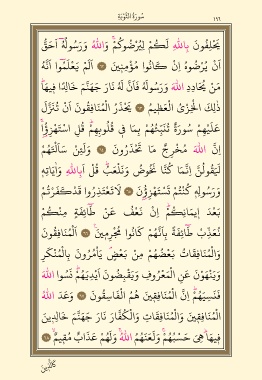 ١٩٦ سُورَةُ التَّوْبَةِ
يَحْلِفُونَ بِاللّٰهِ لَكُمْ لِيُرْضُوكُمْۚ وَاللّٰهُ وَرَسُولُهُٓ اَحَقُّ
اَنْ يُرْضُوهُ اِنْ كَانُوا مُؤْمِن۪ينَ ﴿٦٢﴾ اَلَمْ يَعْلَمُٓوا اَنَّهُ
مَنْ يُحَادِدِ اللّٰهَ وَرَسُولَهُ فَاَنَّ لَهُ نَارَ جَهَنَّمَ خَالِدًا ف۪يهَاۜ
ذٰلِكَ الْخِزْيُ الْعَظ۪يمُ ﴿٦٣﴾ يَحْذَرُ الْمُنَافِقُونَ اَنْ تُنَزَّلَ
عَلَيْهِمْ سُورَةٌ تُنَبِّئُهُمْ بِمَا ف۪ي قُلُوبِهِمْۜ قُلِ اسْتَهْزِؤُ۫اۚ
اِنَّ اللّٰهَ مُخْرِجٌ مَا تَحْذَرُونَ ﴿٦٤﴾ وَلَئِنْ سَاَلْتَهُمْ
لَيَقُولُنَّ اِنَّمَا كُنَّا نَخُوضُ وَنَلْعَبُۜ قُلْ اَبِاللّٰهِ وَاٰيَاتِه۪
وَرَسُولِه۪ كُنْتُمْ تَسْتَهْزِؤُ۫نَ ﴿٦٥﴾ لَا تَعْتَذِرُوا قَدْ كَفَرْتُمْ
بَعْدَ ا۪يمَانِكُمْۜ اِنْ نَعْفُ عَنْ طَٓائِفَةٍ مِنْكُمْ
نُعَذِّبْ طَٓائِفَةً بِاَنَّهُمْ كَانُوا مُجْرِم۪ينَ۟ ﴿٦٦﴾ اَلْمُنَافِقُونَ
وَالْمُنَافِقَاتُ بَعْضُهُمْ مِنْ بَعْضٍۢ يَأْمُرُونَ بِالْمُنْكَرِ
وَيَنْهَوْنَ عَنِ الْمَعْرُوفِ وَيَقْبِضُونَ اَيْدِيَهُمْۜ نَسُوا اللّٰهَ
فَنَسِيَهُمْۜ اِنَّ الْمُنَافِق۪ينَ هُمُ الْفَاسِقُونَ ﴿٦٧﴾ وَعَدَ اللّٰهُ
الْمُنَافِق۪ينَ وَالْمُنَافِقَاتِ وَالْكُفَّارَ نَارَ جَهَنَّمَ خَالِد۪ينَ
ف۪يهَاۜ هِيَ حَسْبُهُمْۚ وَلَعَنَهُمُ اللّٰهُۚ وَلَهُمْ عَذَابٌ مُق۪يمٌۙ ﴿٦٨﴾
كَالَّذ۪ينَ